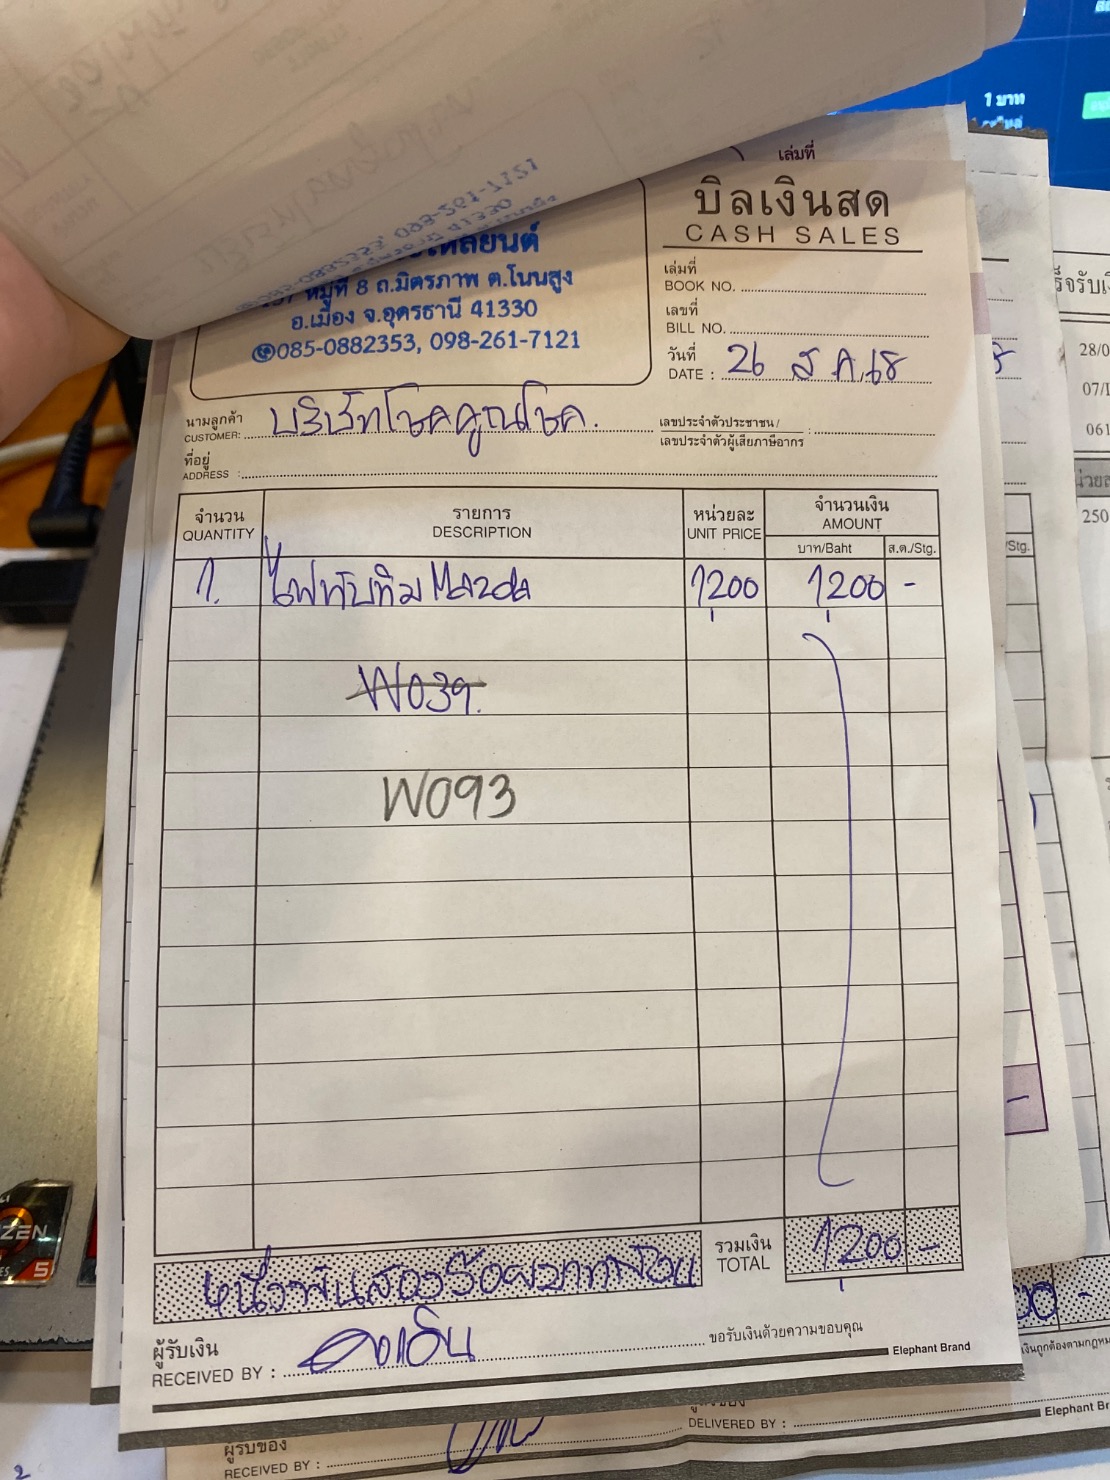 1 บาท
เล่มที่
บิลเงินสด
CASH SALES
หมู่ที่ 8 ถ.มิตรภาพ ต.โนนสูง
อ.เมือง จ.อุดรธานี 41330
085-0882353, 098-261-7121
เล่มที่
BOOK NO.
เลขที่
BILL NO.
วันที่
DATE : 26 ส.ค. 68
นามลูกค้า
CUSTOMER: บริษัทโชคคูณโชค.
เลขประจำตัวประชาชน /
เลขประจำตัวผู้เสียภาษีอากร :
ที่อยู่
ADDRESS :
จำนวน รายการ หน่วยละ จำนวนเงิน
QUANTITY DESCRIPTION UNIT PRICE AMOUNT
บาท/Baht ส.ต./Stg.
1. ไฟทับทิม Mazda 1200 1200 -
W039.
W093
รวมเงิน
TOTAL 1200 -
หนึ่งพันสองร้อยบาทถ้วน
ผู้รับเงิน
RECEIVED BY :
ขอรับเงินด้วยความขอบคุณ
Elephant Brand
DELIVERED BY :
ผู้รับของ
RECEIVED BY :
28/0
07/
061
250
/Stg.
ZEN
5